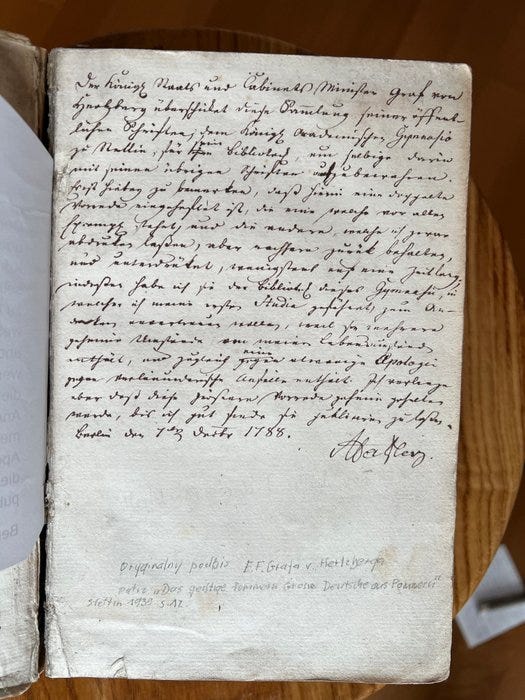 Der Königl Staats und Cabinets Minister Graf von
Hertzberg überschicket diese Sammlung seiner öffent
lichen Schriften, dem Königl academischen Gymnasio
zu Stettin, für sein Bibliothek, um selbige darin
mit seinen übrigen Schriften aufzubewahren.
zu bemerken, daß hierin eine doppelte
Vorrede eingeheftet ist, die eine welche vor allen
Exempl stehet, und die andere, welche ich zwar
abdrucken lassen, aber nachhero zurük behalten,
und unterdrüket, wenigstens auf eine Zeitlang,
indessen habe ich sie der Bibliothec dieses Gymnasii, in
welcher ich meine ersten Studia geführet, zum An-
denken anvertrauen wollen, weil sie mehrere
geheime Umstände von meinen Lebensumständen
enthält, und zugleich eine Apologie
gegen verläumderische Anfälle enthält. Ich verlange
aber daß diese Vorrede geheim gehalten
werde, bis ich gut finde sie zu lassen.
Berlin den 7ten Decbr 1788.
Oryginalny podpis E.F. Grafa v. Hertzberga
patrz "Das geistige Pommern Grosse Deutsche aus Pommern"
Stettin 1939 S. 12